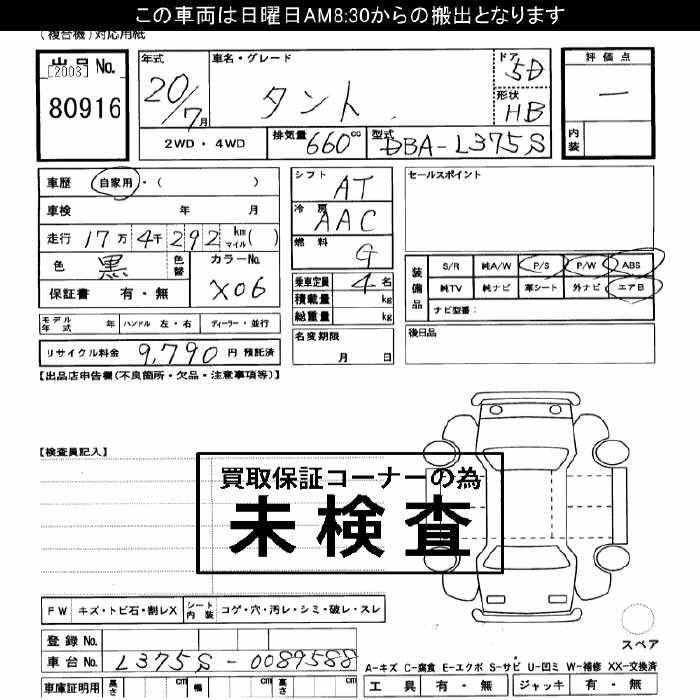 この車両は日曜日AM8:30からの搬出となります
(複合機)対応用紙
出品No. [2003] 80916
年式 20/7月
車名・グレード タント
ドア 5D
形状 HB
評価点 ー
内装
2WD・4WD 排気量 660cc 型式 DBA-L375S
車歴 自家用・( )
車検 年 月
走行 17万4千292 km マイル( )
色 黒 色替 カラーNo. X06
保証書 有・無
シフト AT
冷房 AAC
燃料 G
乗車定員 4名
積載量 kg
総重量 kg
セールスポイント
装備品 S/R 純A/W P/S P/W ABS
純TV 純ナビ 革シート 外ナビ エアB
ナビ型番:
モデル年式 年 ハンドル 左・右 ディーラー・並行
名変期限 月 日
後日品
リサイクル料金 9,790 円 預託済
【出品店申告欄(不良箇所・欠品・注意事項等)】
【検査員記入】
買取保証コーナーの為
未検査
FW キズ・トビ石・割レX シート内装 コゲ・穴・汚レ・シミ・破レ・スレ
スペア
登録No.
車台No. L375S-0089588
A-キズ C-腐食 E-エクボ S-サビ U-凹ミ W-補修 XX-交換済
車庫証明用 長さ cm 幅 cm 高さ cm
工具 有・無 ジャッキ 有・無